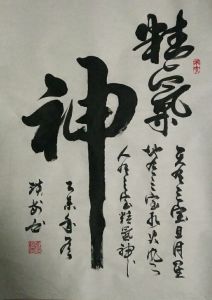 精氣
神
天有三宝日月星
地有三宝水火风
人有三宝精氣神
乙未年夏